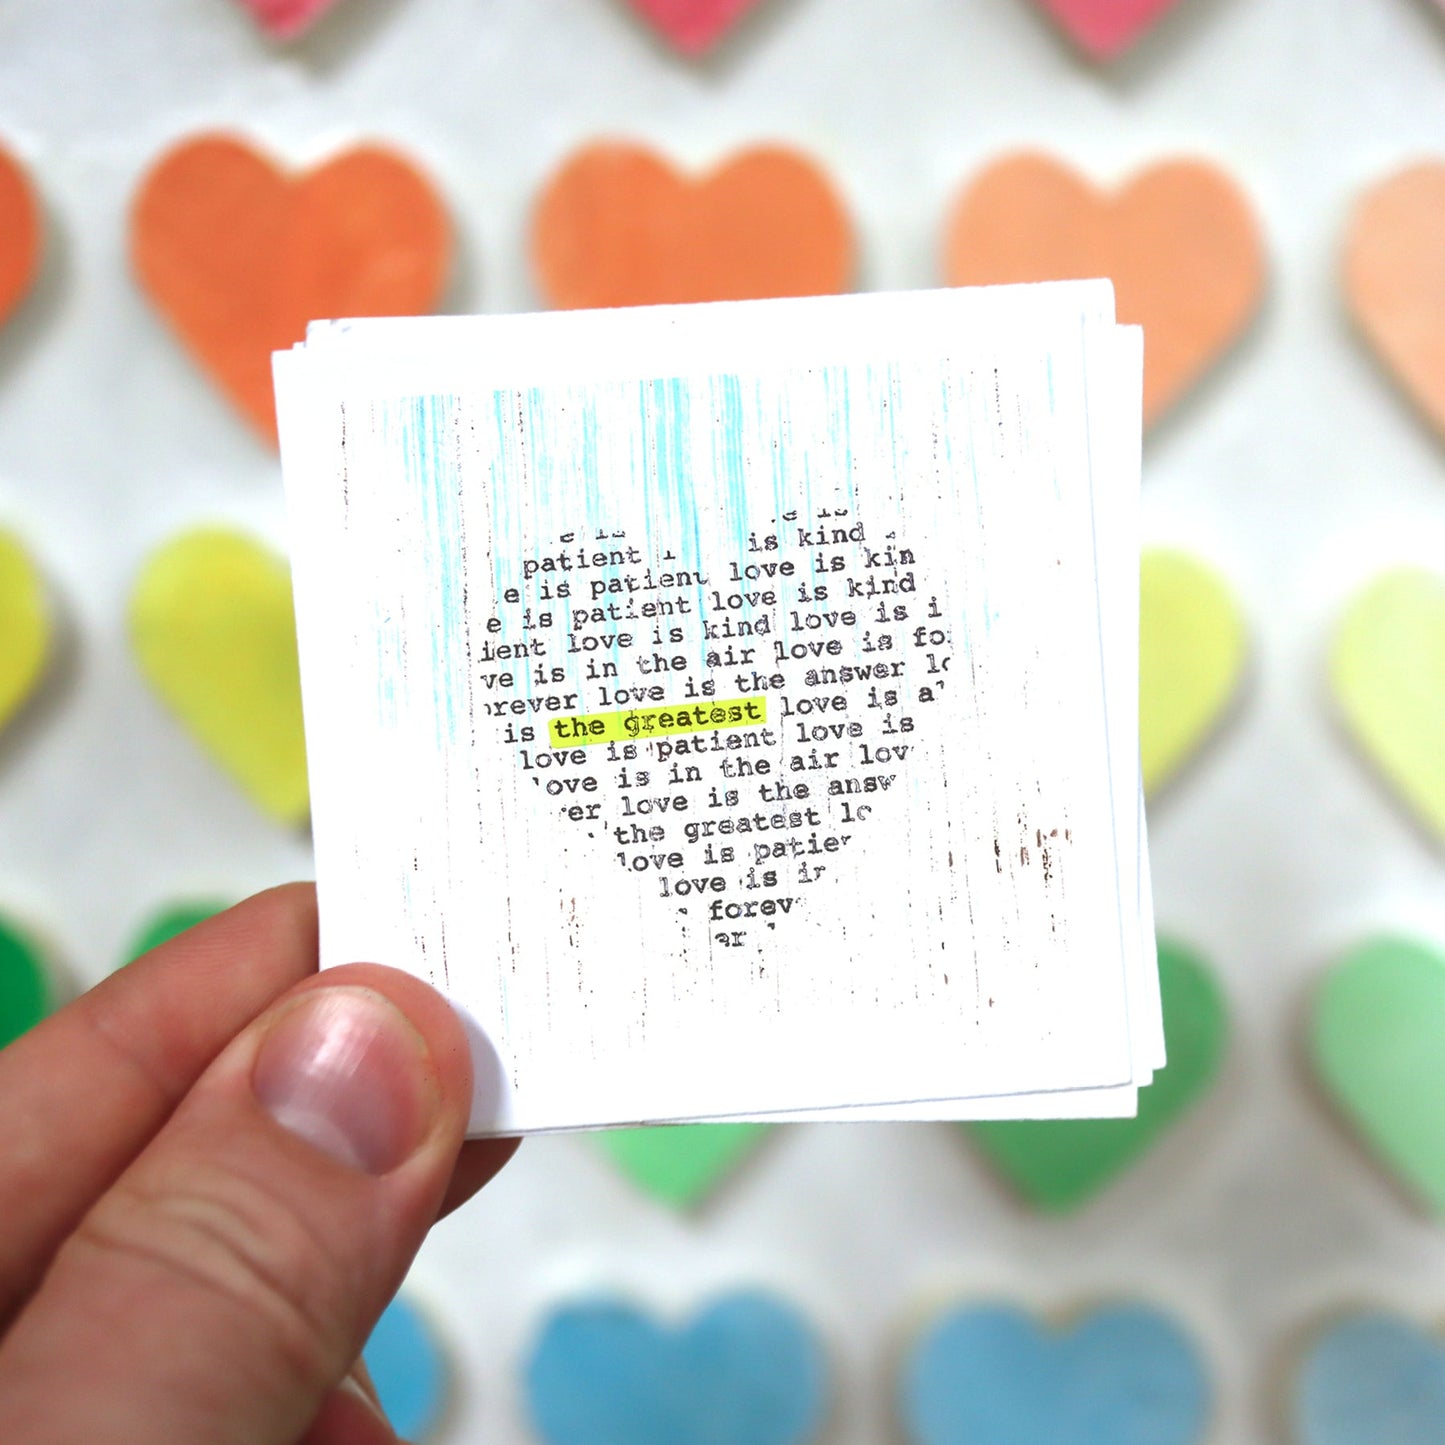 is
patient is kind
e is patient love is kin
e is patient love is kind
ient love is kind love is i
ve is in the air love is fo
rever love is the answer lo
is the greatest love is a
love is patient love is
ove is in the air lov
er love is the answ
the greatest lo
love is patie
love is in
forev
er